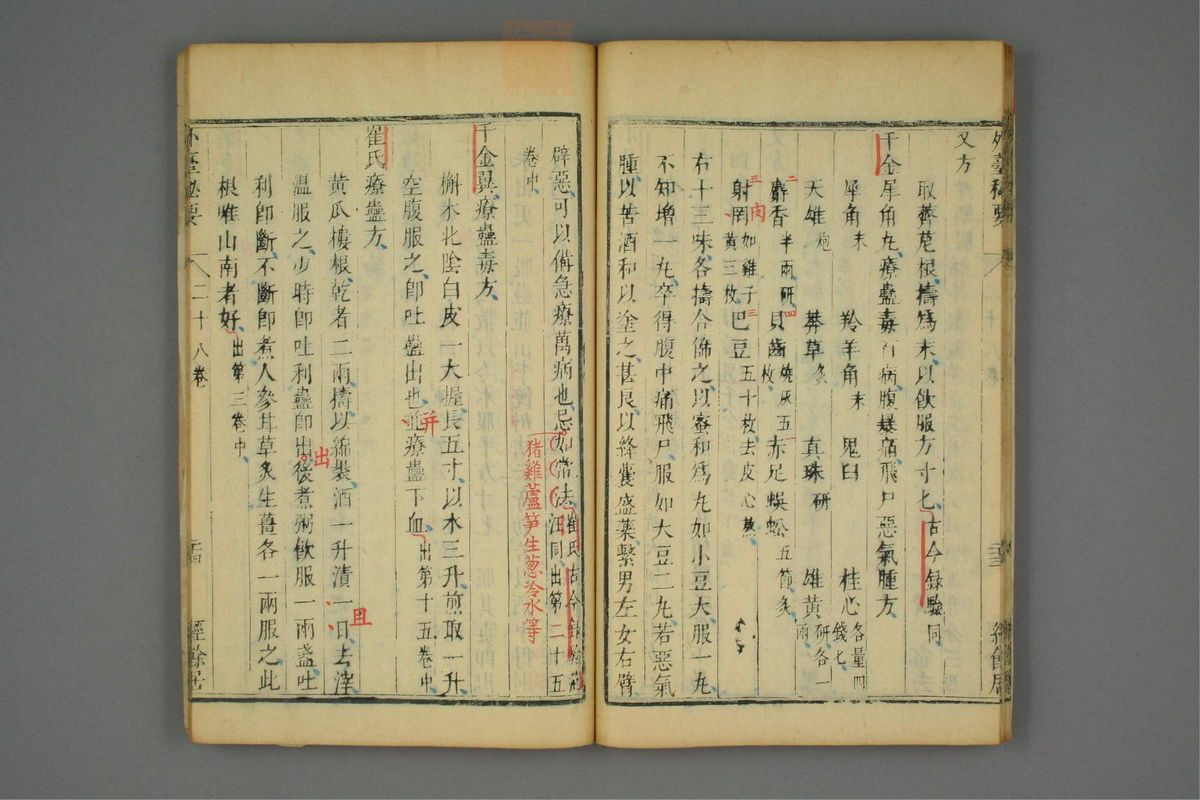 外臺秘要
二十八卷
二十三
經餘居
又方
取薺苨根擣爲末以飲服方寸匕古今錄驗同
千金犀角丸療蠱毒百病腹暴痛飛尸惡氣腫方
犀角末 羚羊角末 鬼臼 桂心各量四錢匕
天雄炮 莽草炙 真珠研 雄黃研各一兩
麝香半兩研 貝齒燒灰五枚 赤足蜈蚣五節炙
二 四 一
射罔如雞子黃三枚 巴豆五十枚去皮心熬
五 肉 三
右十三味各擣合篩之以蜜和爲丸如小豆大服一丸
不知增一丸卒得腹中痛飛尸服如大豆二丸若惡氣
腫以苦酒和以塗之甚良以絳囊盛藥繫男左女右臂
辟惡可以備急療萬病也忌如常法崔氏古今錄驗並同出第二十五
卷中
猪雞蘆笋生葱冷水等
千金翼療蠱毒方
槲木北陰白皮一大握長五寸以水三升煎取一升
空腹服之卽吐蠱出也並療蠱下血出第十五卷中
并
崔氏療蠱方
黃瓜樓根乾者二兩擣以綿裹酒一升漬一日去滓
且
溫服之少時卽吐利蠱卽出後煮粥飲服一兩盞吐
出
利卽斷不斷卽煮人參茸草炙生薑各一兩服之此
根唯山南者好出第三卷中
外臺秘要
二十八卷
二十四
經餘居